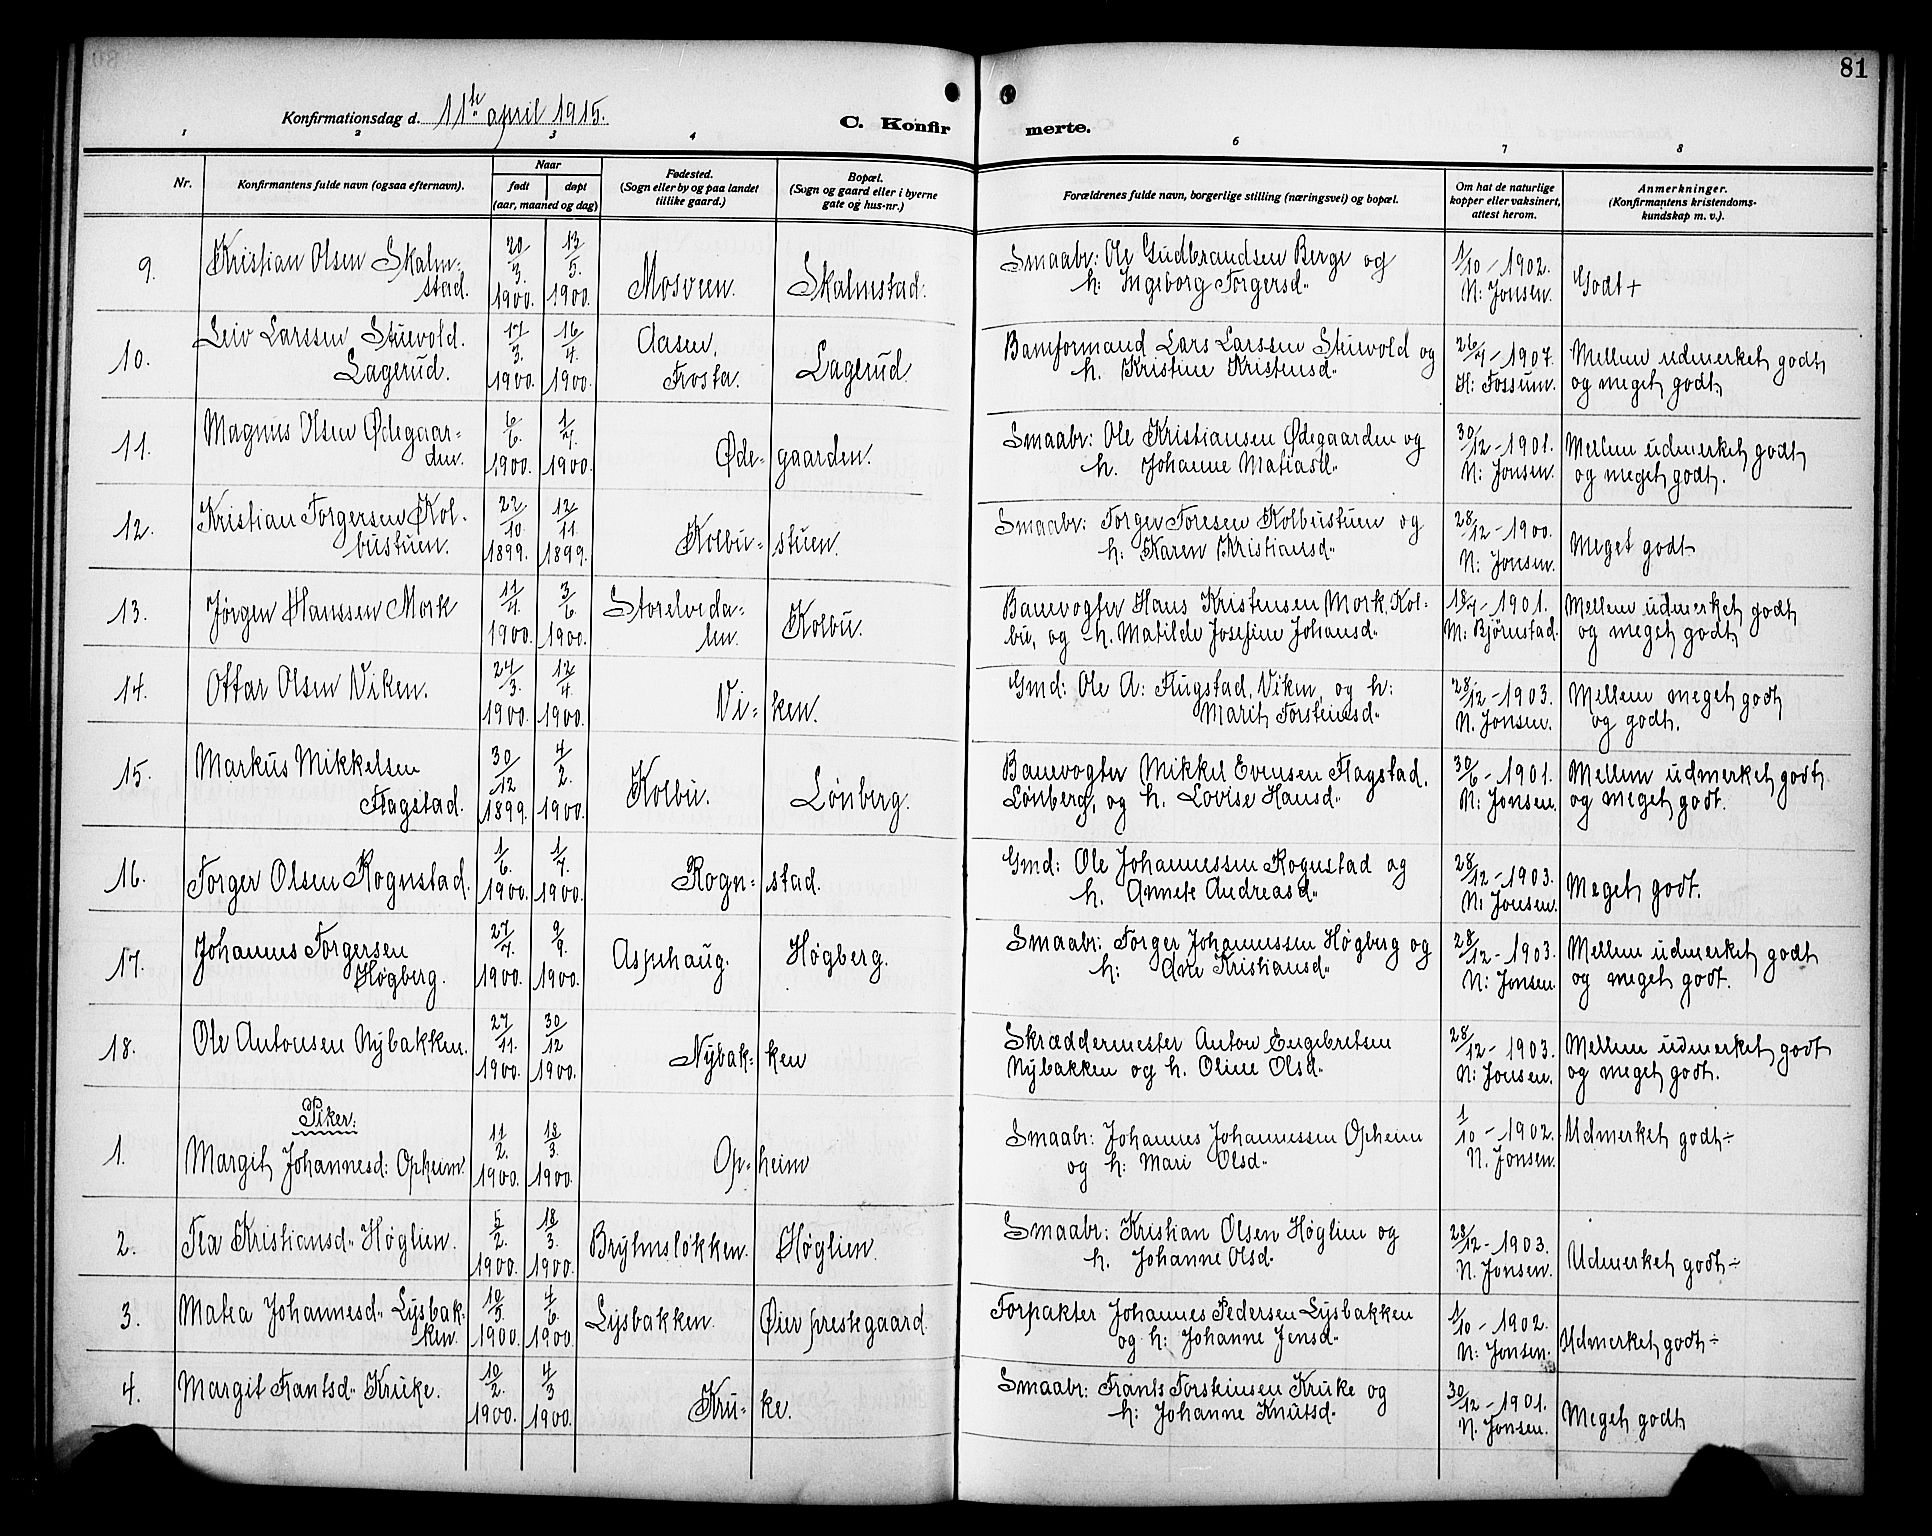 81
Konfirmationsdag d. 11te april 1915.
C. Konfirmerte.
1 2 3 4 6 7 8
Nr.
Konfirmantens fulde navn (ogsaa efternavn).
Naar
født døpt
(aar, maaned og dag)
Fødested.
(Sogn eller by og paa landet
tillike gaard.)
Bopæl.
(Sogn og gaard eller i byerne
gate og hus-nr.)
Forældrenes fulde navn, borgerlige stilling (næringsvei) og bopæl.
Om hat de naturlige
kopper eller vaksinert,
attest herom.
Anmerkninger.
(Konfirmantens kristendoms-
kundskap m. v.).
9. Kristian Olsen Skalm-
stad.
20/3. 1900. 13/5. 1900.
Mosveen. Skalmstad.
Smaabr: Ole Gudbrandsen Berge og
h: Ingeborg Torgersd.
1/10 - 1902.
N: Jonsen.
Godt +
10. Leiv Larssen Stuevold.
Lagerud.
17/3. 1900. 16/4. 1900.
Aasen,
Frosta.
Lagerud.
Baneformand Lars Larssen Stuevold og
h. Kristine Kristensd.
26/7 - 1907.
H: Fossum.
Mellem udmerket godt
og meget godt.
11. Magnus Olsen Ødegaar-
den.
6/6. 1900. 1/7. 1900.
Øde- gaarden.
Smaabr: Ole Kristiansen Ødegaarden og
h. Johanne Matiasd.
30/12 - 1901.
N: Jonsen.
Mellem udmerket godt
og meget godt.
12. Kristian Torgersen Kol-
bustuen.
22/10 1899. 12/11. 1899.
Kolbu- stuen.
Smaabr: Torger Toresen Kolbustuen og
h: Karen Kristiansd.
28/12 - 1900.
N: Jonsen.
Meget godt
13. Jørgen Hanssen Mork
11/4. 1900. 3/6. 1900.
Storelveda-
len.
Kolbu.
Banevogter Hans Kristensen Mork, Kol-
bu, og h. Matilde Josefine Johansd.
18/7 - 1901.
M: Bjørnstad.
Mellem udmerket godt
og meget godt
14. Ottar Olsen Viken.
24/3. 1900. 12/4. 1900.
Vi- ken.
Gmd: Ole A: Flugstad, Viken, og h:
Marit Torsteinsd.
28/12 - 1903.
N. Jonsen.
Mellem meget godt
og godt.
15. Markus Mikkelsen
Flagstad.
30/12 1899. 4/2. 1900.
Kolbu. Lønberg.
Banevogter Mikkel Evensen Flagstad,
Lønberg, og h. Lovise Hansd.
30/6 - 1901.
N: Jonsen.
Mellem udmerket godt
og meget godt.
16. Torger Olsen Rognstad.
1/6. 1900. 1/7. 1900.
Rogn- stad.
Gmd: Ole Johannessen Rognstad og
h. Annete Andreasd.
28/12 - 1903.
N: Jonsen.
Meget godt.
17. Johannes Torgersen
Høgberg.
27/7. 1900. 9/9. 1900.
Aspehaug. Høgberg.
Smaabr: Torger Johannessen Høgberg og
h: Ane Kristiansd.
28/12 - 1903.
N: Jonsen.
Mellem udmerket godt
og meget godt.
18. Ole Antonsen Nybakken.
27/11. 1900. 30/12 1900.
Nybak- ken
Skræddermester Anton Engebretsen
Nybakken og h. Oline Olsd.
28/12 - 1903.
N: Jonsen.
Mellem udmerket godt
og meget godt.
Piker:
1. Margit Johannesd: Opheim.
11/2. 1900. 18/3. 1900.
Op- heim
Smaabr: Johannes Johannessen Opheim
og h: Mari Olsd.
1/10 - 1902.
N. Jonsen.
Udmerket godt ÷
2. Tea Kristiansd. Høglien.
5/2. 1900. 18/3. 1900.
Brynsløkken. Høglien.
Smaabr: Kristian Olsen Høglien og
h. Johanne Olsd.
28/12 - 1903.
N. Jonsen.
Udmerket godt ÷
3. Matea Johannesd. Lysbak-
ken.
10/5. 1900. 4/6. 1900.
Lysbakken. Øier prestegaard.
Forpakter Johannes Pedersen Lysbakken
og h: Johanne Jensd.
1/10 - 1902.
N: Jonsen.
Udmerket godt ÷
4. Margit Frantsd. Kruke.
10/2. 1900. 4/3 1900.
Kru- ke.
Smaabr: Frants Torsteinsen Kruke og
h: Johanne Knutsd.
30/12 - 1901.
N. Jonsen.
Meget godt